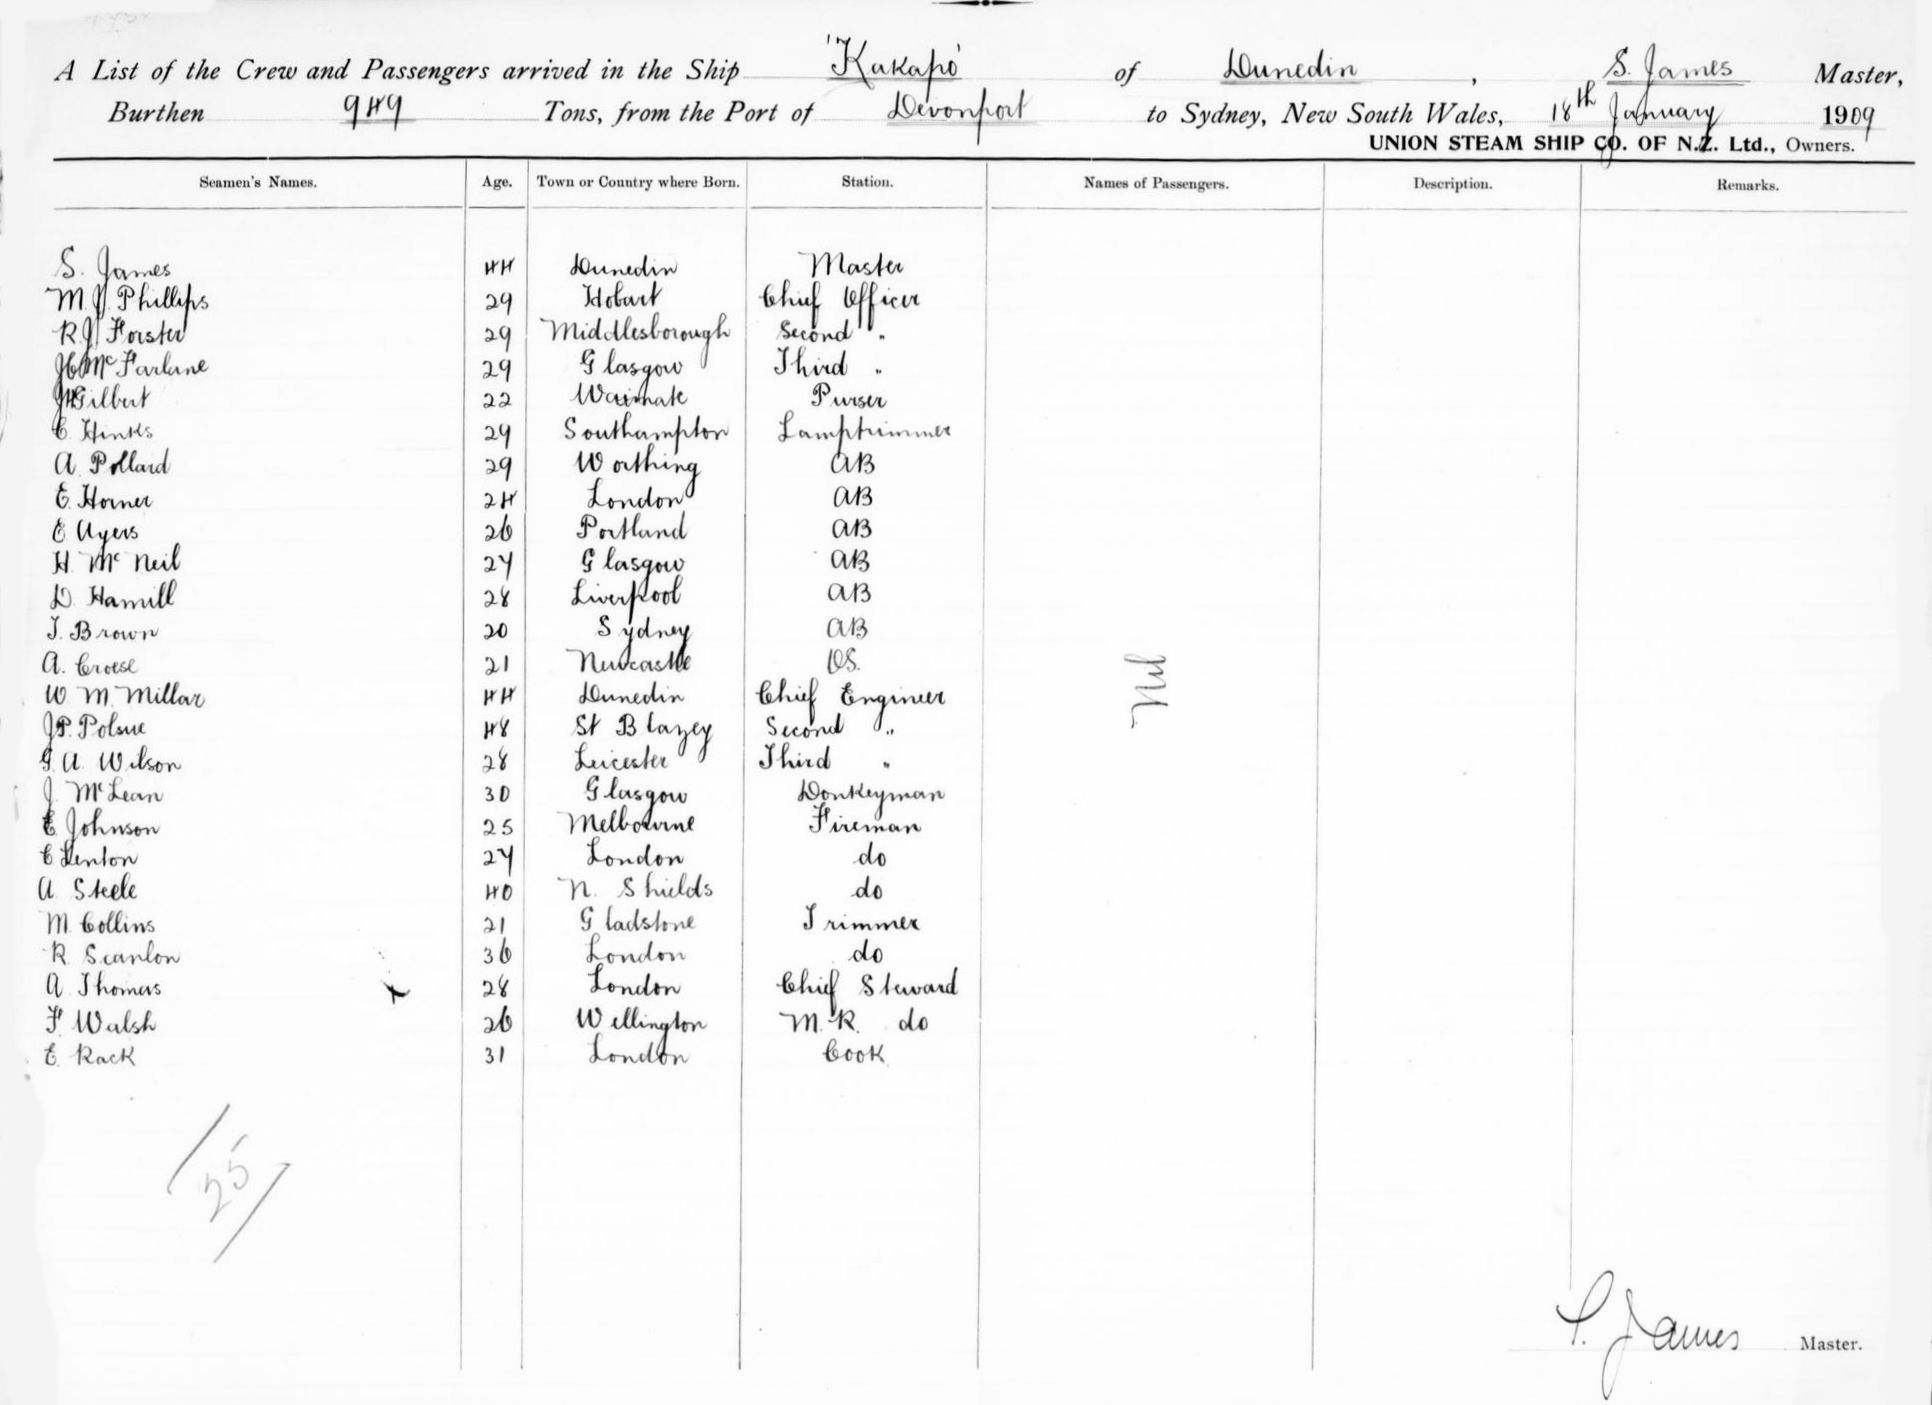 A List of the Crew and Passengers arrived in the Ship "Kakapo" of Dunedin, S. James Master,
Burthen 949 Tons, from the Port of Devonport to Sydney, New South Wales, 18th January 1909
UNION STEAM SHIP CO. OF N.Z. Ltd., Owners.
Seamen's Names. Age. Town or Country where Born. Station. Names of Passengers. Description. Remarks.
S. James 44 Dunedin Master
M. J. Phillips 29 Hobart Chief Officer
R. J. Forster 29 Middlesborough Second "
McFarlane 29 Glasgow Third "
Gilbert 22 Waimate Purser
C. Hinks 29 Southampton Lamptrimmer
A. Pollard 29 Worthing AB
E. Horner 24 London AB
E Ayers 26 Portland AB
H. McNeil 27 Glasgow AB
D. Hamill 28 Liverpool AB
T. Brown 20 Sydney AB
A. Croese 21 Newcastle OS.
W. M. Millar 44 Dunedin Chief Engineer
J. P. Polsue 48 St Blazey Second "
G. A. Wilson 28 Leicester Third "
J. McLean 30 Glasgow Donkeyman
E Johnson 25 Melbourne Fireman
C Lenton 27 London do
A. Steele 40 N. Shields do
M. Collins 21 Gladstone Trimmer
R. Scanlon 36 London do
A. Thomas x 28 London Chief Steward
F. Walsh 26 Wellington M. R. do
E. Rack 31 London Cook
Nil
/25/
S. James Master.